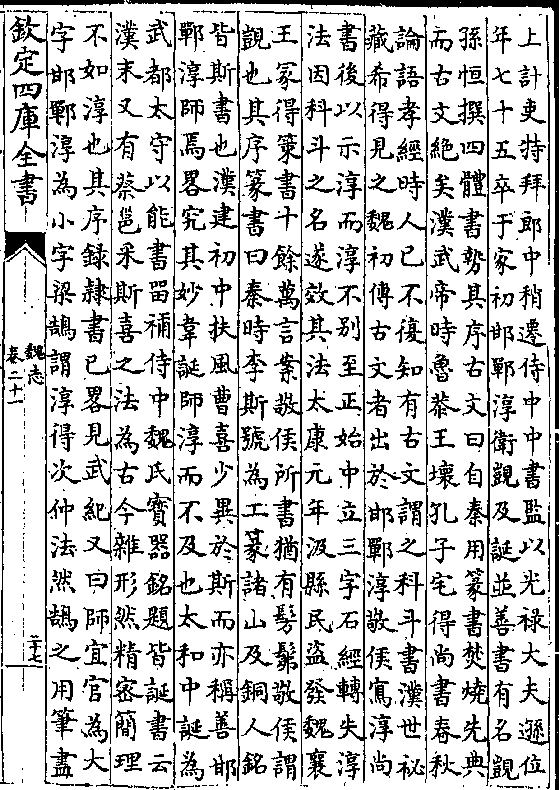 上計吏特拜郎中稍遷侍中中書監以光禄大夫遜位
年七十五卒于家初邯鄲淳衛覬及誕並善書有名覬
孫恒撰四體書勢其序古文曰自秦用篆書焚燒先典
而古文絶矣漢武帝時魯恭王壞孔子宅得尚書春秋
論語孝經時人已不復知有古文謂之科斗書漢世祕
藏希得見之魏初傳古文者出於邯鄲淳敬侯寫淳尚
書後以示淳而淳不别至正始中立三字石經轉失淳
法因科斗之名遂效其法太康元年汲縣民盜發魏襄
王冢得策書十餘萬言案敬侯所書猶有髣髴敬侯謂
覬也其序篆書曰秦時李斯號為工篆諸山及銅人銘
皆斯書也漢建初中扶風曹喜少異於斯而亦稱善邯
鄲淳師焉畧究其妙韋誕師淳而不及也太和中誕為
武都太守以能書留補侍中魏氏寶器銘題皆誕書云
漢末又有蔡邕采斯喜之法為古今雜形然精密簡理
不如淳也其序録隷書已畧見武紀又曰師宜官為大
字邯鄲淳為小字梁鵠謂淳得次仲法然鵠之用筆盡
欽定四庫全書
魏志
卷二十一
二十七